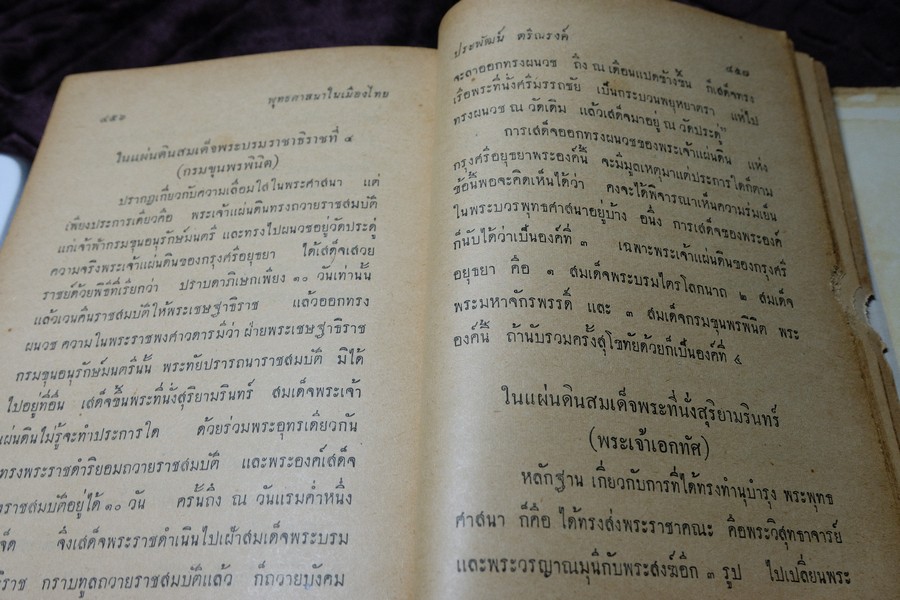 พุทธศาสนาในเมืองไทย
๔๕๖
ในแผ่นดินสมเด็จพระบรมราชาธิราชที่ ๔
(กรมขุนพรพินิต)
ปรากฏเกี่ยวกับความเลื่อมใสในพระศาสนา แต่
เพียงประการเดียวคือ พระเจ้าแผ่นดินทรงถวายราชสมบัติ
แก่เจ้าฟ้ากรมขุนอนุรักษ์มนตรี และทรงไปผนวชอยู่วัดประดู่
ความจริงพระเจ้าแผ่นดินของกรุงศรีอยุธยา ได้เสด็จเสวย
ราชย์ด้วยพิธีที่เรียกว่า ปราบดาภิเษกเพียง ๑๐ วันเท่านั้น
แล้วเวนคืนราชสมบัติให้พระเชษฐาธิราช แล้วออกทรง
ผนวช ความในพระราชพงศาวดารมีว่า ฝ่ายพระเชษฐาธิราช
กรมขุนอนุรักษ์มนตรีนั้น พระทัยปรารถนาราชสมบัติ มิได้
ไปอยู่ที่อื่น เสด็จขึ้นพระที่นั่งสุริยามรินทร์ สมเด็จพระเจ้า
แผ่นดินไม่รู้จะทำประการใด ด้วยร่วมพระอุทรเดียวกัน
ทรงพระราชดำริยอมถวายราชสมบัติ และพระองค์เสด็จ
ราชสมบัติอยู่ได้ ๑๐ วัน ครั้นถึง ณ วันแรมค่ำหนึ่ง
จึงเสด็จพระราชดำเนินไปเฝ้าสมเด็จพระบรม
ธิราช กราบทูลถวายราชสมบัติแล้ว ก็ถวายบังคม
ประพัฒน์ ตริณรงค์
๔๕๗
จะลาออกทรงผนวช ถึง ณ เดือนแปดข้างขึ้น ก็เสด็จทรง
เรือพระที่นั่งศรีมรรถชัย เป็นกระบวนพยุหยาตรา แห่ไป
ทรงผนวช ณ วัดเดิม แล้วเสด็จมาอยู่ ณ วัดประดู่"
การเสด็จออกทรงผนวชของพระเจ้าแผ่นดิน แห่ง
กรุงศรีอยุธยาพระองค์นี้ จะมีมูลเหตุมาแต่ประการใดก็ตาม
ข้อนี้พอจะคิดเห็นได้ว่า คงจะได้พิจารณาเห็นความร่มเย็น
ในพระบวรพุทธศาสนาอยู่บ้าง อนึ่ง การเสด็จของพระองค์
ก็นับได้ว่าเป็นองค์ที่ ๓ เฉพาะพระเจ้าแผ่นดินของกรุงศรี
อยุธยา คือ ๑ สมเด็จพระบรมไตรโลกนาถ ๒ สมเด็จ
พระมหาจักรพรรดิ์ และ ๓ สมเด็จกรมขุนพรพินิต พระ
องค์นี้ ถ้านับรวมครั้งสุโขทัยด้วยก็เป็นองค์ที่ ๔
ในแผ่นดินสมเด็จพระที่นั่งสุริยามรินทร์
(พระเจ้าเอกทัศ)
หลักฐาน เกี่ยวกับการที่ได้ทรงทำนุบำรุง พระพุทธ
ศาสนา ก็คือ ได้ทรงส่งพระราชาคณะ คือพระวิสุทธาจารย์
และพระวรญาณมุนีกับพระสงฆ์อีก ๓ รูป ไปเปลี่ยนพระ